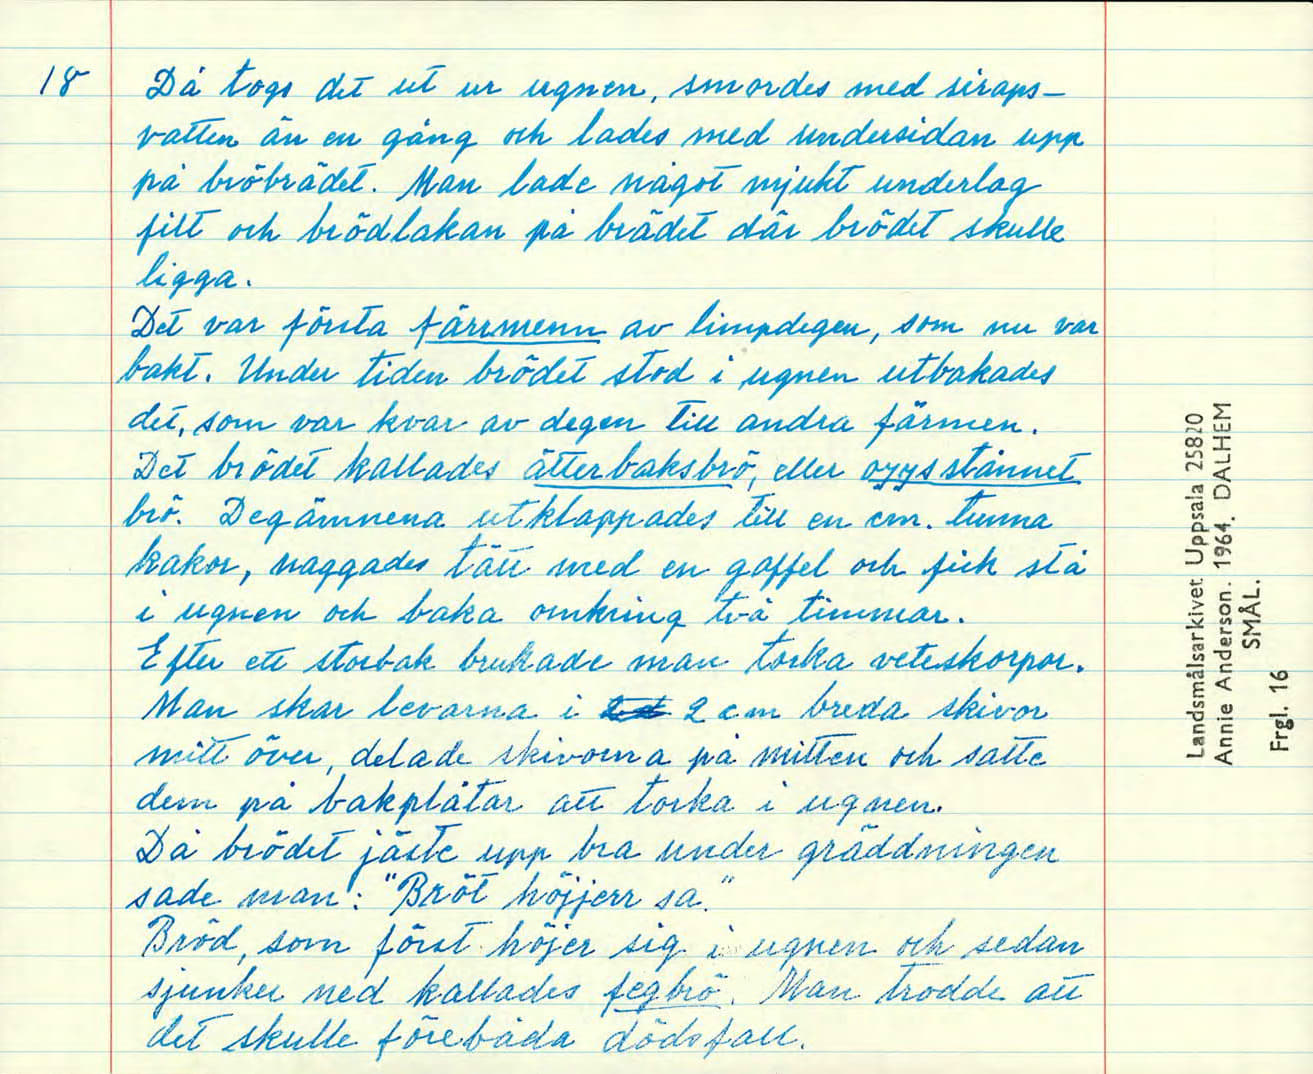 18 Då togs det ut ur ugnen, smordes med siraps-
vatten än en gång och lades med undersidan upp
på bröbrädet. Man lade något mjukt underlag
filt och brödlakan på brädet där brödet skulle
ligga.
Det var första färrmenn av limpdegen, som nu var
bakt. Under tiden brödet stod i ugnen utbakades
det, som var kvar av degen till andra färmen.
Det brödet kallades ätterbaksbrö, eller oyysstännet
brö. Degämnena utklappades till en cm. tunna
kakor, naggades tätt med en gaffel och fick stå
i ugnen och baka omkring två timmar.
Efter ett storbak brukade man torka veteskorpor.
Man skar levarna i 2 cm breda skivor
mitt över, delade skivorna på mitten och satte
dem på bakplåtar att torka i ugnen.
Då brödet jäste upp bra under gräddningen
sade man: "Bröt höjjerr sa."
Bröd, som först höjer sig i ugnen och sedan
sjunker ned kallades fegbrö. Man trodde att
det skulle förebåda dödsfall.
Landsmålsarkivet Uppsala 25820
Annie Anderson. 1964. DALHEM
SMÅL.
Frgl. 16